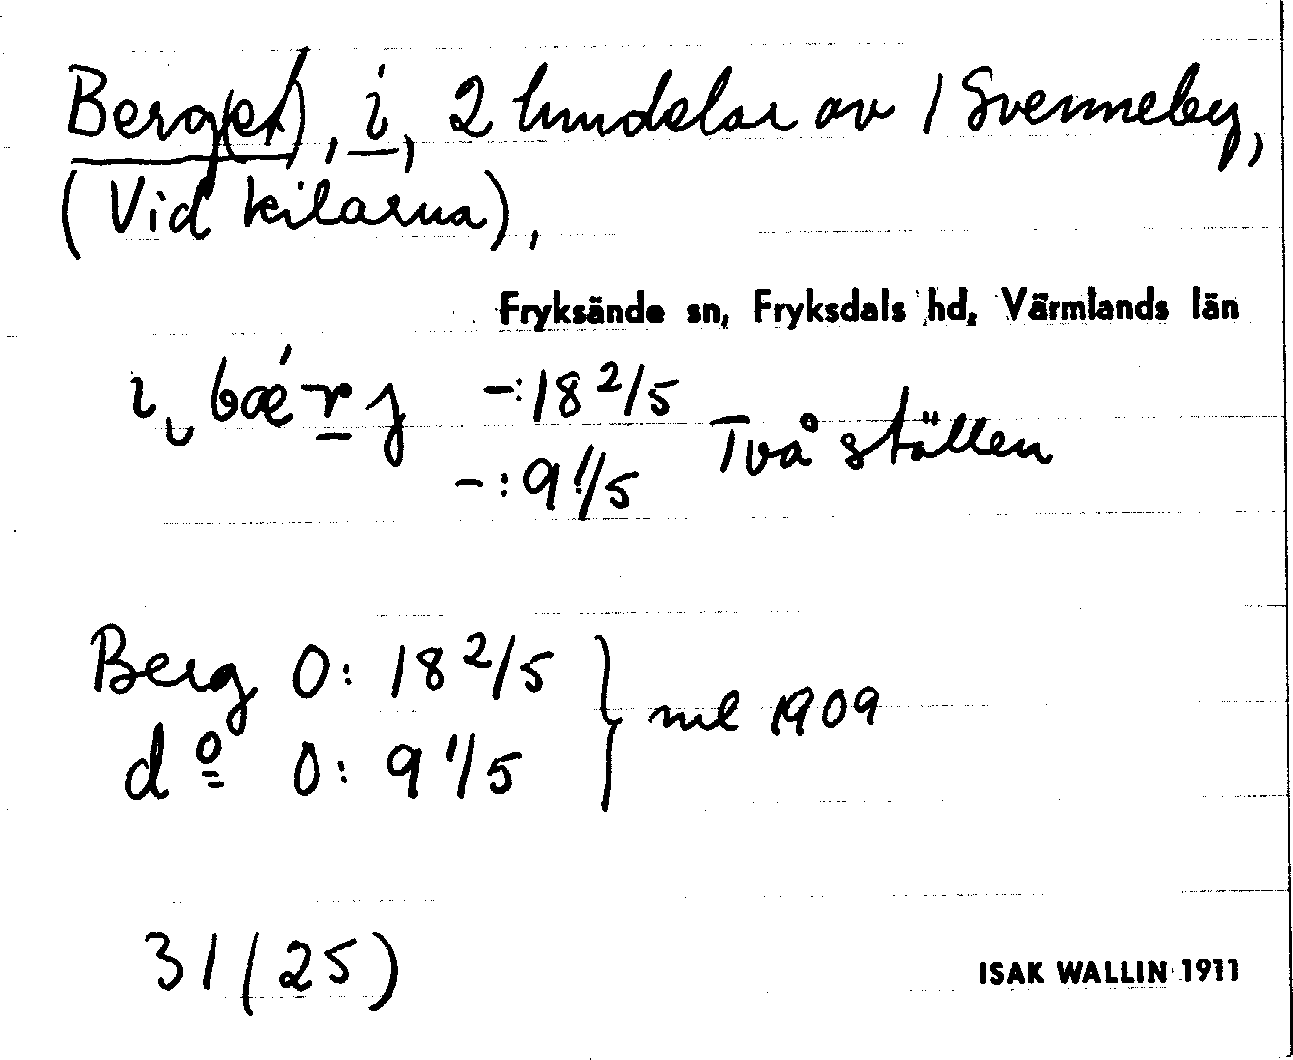 Berg(et), i, 2 lundelar av 1 Svenneby,
(Vid kilarna),
Fryksände sn, Fryksdals hd, Värmlands län
i, bǽrj -:18 2/5
-:9 1/5 Två ställen
Berg 0: 18 2/5
dº 0: 9 1/5 } ml 1909
31 (25)
ISAK WALLIN 1911